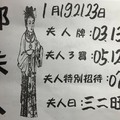 1月19.21.23日
夫人牌:03.13
夫人3肖:05.12
夫人特别招待:0
夫人曰:三二
夫人